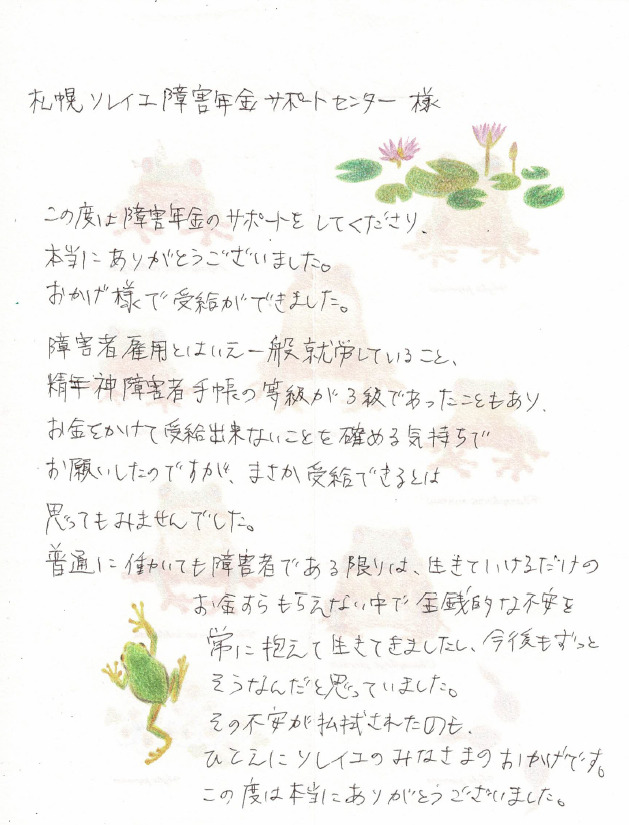 札幌ソレイユ障害年金サポートセンター 様
この度は障害年金のサポートをしてくださり、
本当にありがとうございました。
おかげ様で受給ができました。
障害者雇用とはいえ一般就労していること、
精神障害者手帳の等級が3級であったこともあり、
お金をかけて受給出来ないことを確める気持ちで
お願いしたのですが、まさか受給できるとは
思ってもみませんでした。
普通に働いても障害者である限りは、生きていけるだけの
お金すらもらえない中で金銭的な不安を
常に抱えて生きてきましたし、今後もずっと
そうなんだと思っていました。
その不安が払拭されたのも、
ひとえにソレイユのみなさまのおかげです。
この度は本当にありがとうございました。